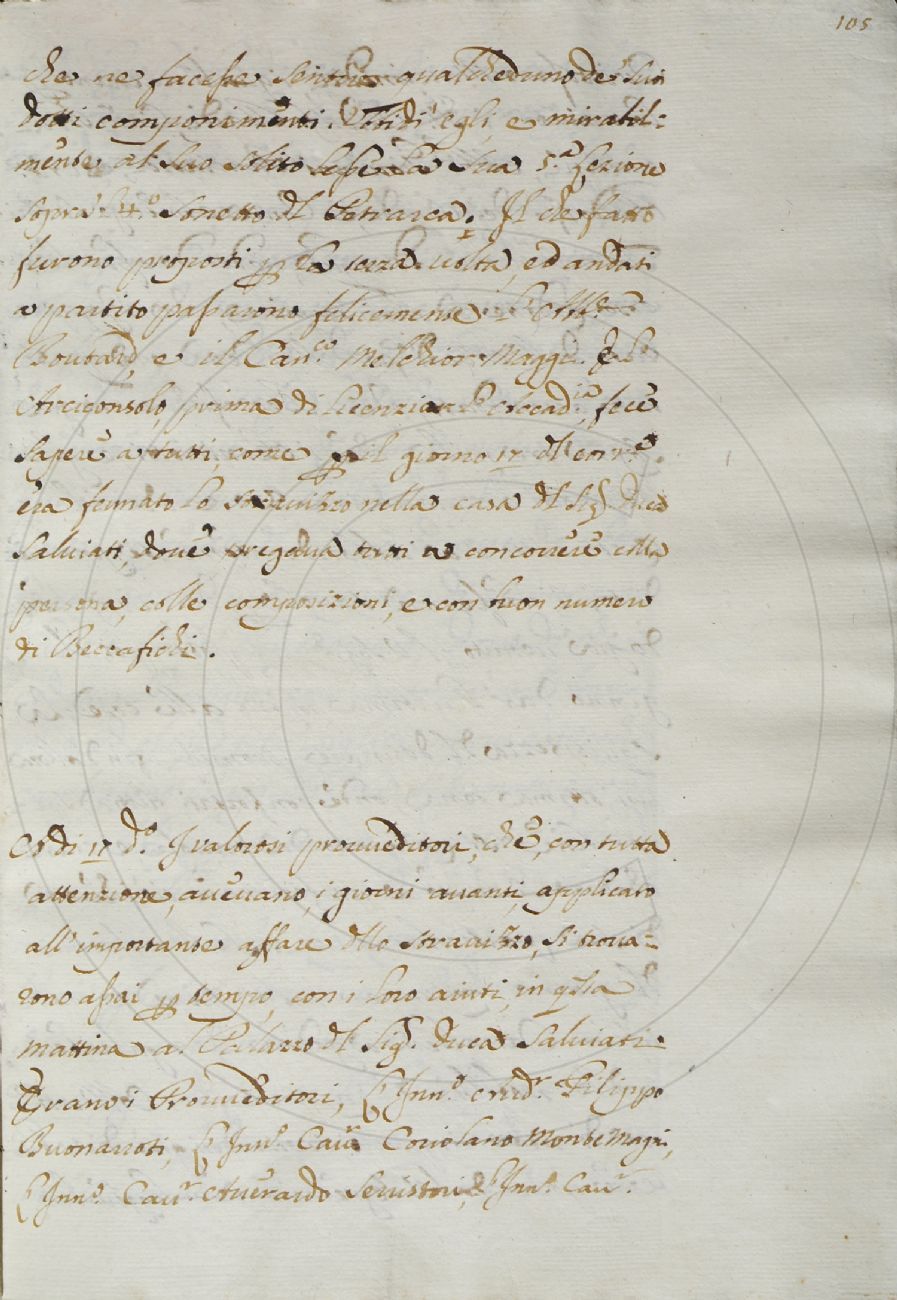 105
che ne facesse sentire qualcheduno de' suoi
dotti componimenti. Ubbidì egli, e mirabil=
mente al suo solito lesse la sua 5.ª Lezione
sopra il 4.º Sonetto dl Petrarca. Il che fatto
furono proposti p la terza volta, ed andati
a partito passarono felicemente l'
e il Can.co Melchior Maggi. L'
Arciconsolo, prima di licenziar l'Accad.ia, fece
sapere a tutti, come p il giorno 17 dl corr.e
era fermato lo stravizzo nella casa dl Sig. Duca
Salviati, dove pregava tutti a concorrere colla
persona, colle composizioni, e con buon numero
di Beccafichi.
A dì 17 d.º I valorosi provveditori, che, con tutta
attenzione, avevano, i giorni avanti, applicato
all'importante affare dllo stravizzo, si trova=
rono assai p tempo, con i loro aiuti, in qsta
mattina al Palazzo dl Sig. Duca Salviati.
Erano i Provveditori, l'Inn.º Aud.r Filippo
Buonaroti, l'Inn.º Cav. Coriolano Montemagni,
l'Inn.º Cav.r Averardo Serristori, l'Inn.º Cav.r